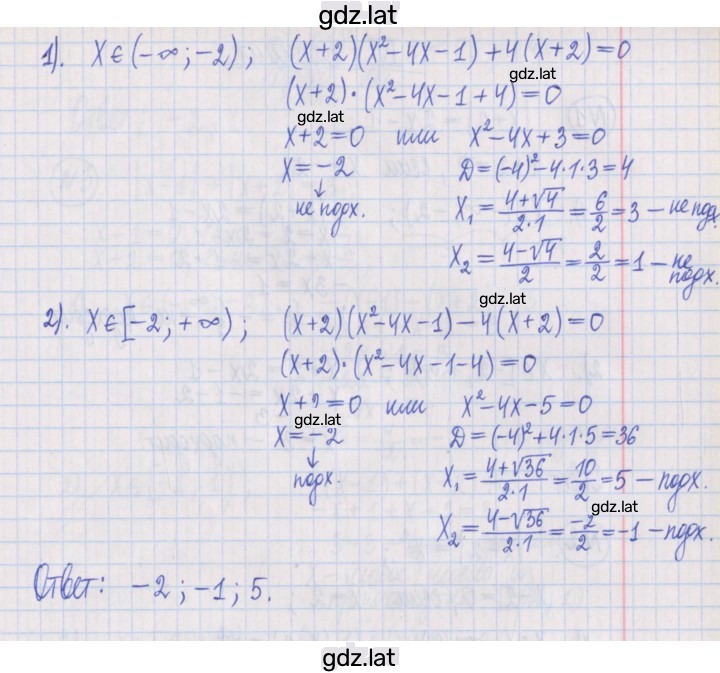 gdz.lat
1). x ∈ (-∞; -2); (x+2)(x²-4x-1)+4(x+2)=0
gdz.lat
(x+2)·(x²-4x-1+4)=0
gdz.lat
x+2=0 или x²-4x+3=0
x=-2 D=(-4)²-4·1·3=4
↓
не подх. x₁ = (4+√4)/(2·1) = 6/2 = 3 – не подх.
x₂ = (4-√4)/2 = 2/2 = 1 – не подх.
gdz.lat
2). x ∈ [-2; +∞); (x+2)(x²-4x-1)-4(x+2)=0
(x+2)·(x²-4x-1-4)=0
x+2=0 или x²-4x-5=0
gdz.lat
x=-2 D=(-4)²+4·1·5=36
↓
подх. x₁ = (4+√36)/(2·1) = 10/2 = 5 – подх.
gdz.lat
x₂ = (4-√36)/(2·1) = -2/2 = -1 – подх.
Ответ: -2; -1; 5.
gdz.lat